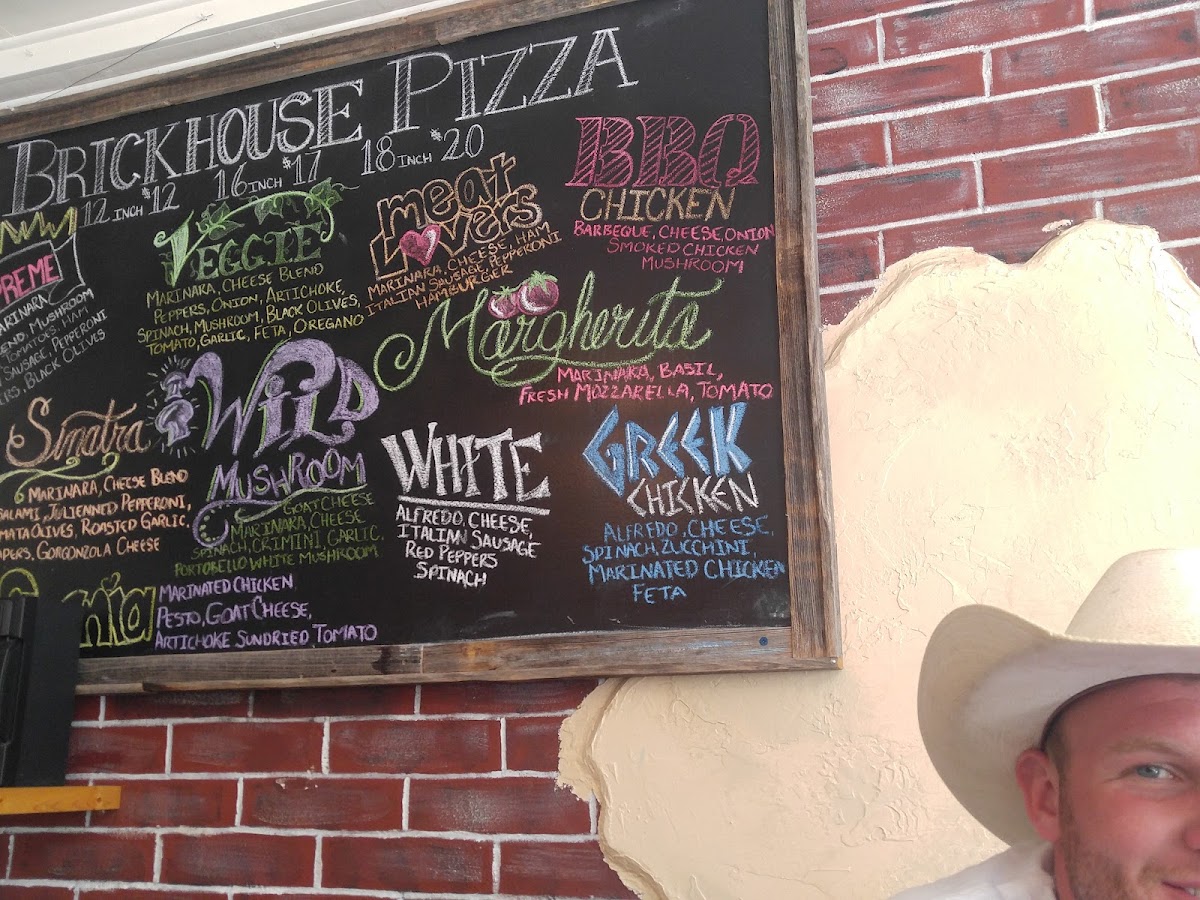 BRICKHOUSE PIZZA
12 INCH $12 16 INCH $17 18 INCH $20
PREME
MARINARA
END, MUSHROOM
TOMATOES, HAM
SAUSAGE, PEPPERONI
ERS, BLACK OLIVES
VEGGIE
MARINARA, CHEESE BLEND
PEPPERS, ONION, ARTICHOKE
SPINACH, MUSHROOM, BLACK OLIVES,
TOMATO, GARLIC, FETA, OREGANO
meat
Lovers
MARINARA, CHEESE, HAM
ITALIAN SAUSAGE, PEPPERONI
HAMBURGER
BBQ
CHICKEN
BARBEQUE, CHEESE, ONION
SMOKED CHICKEN
MUSHROOM
Margherita
MARINARA, BASIL,
FRESH MOZZARELLA, TOMATO
Sinatra
MARINARA, CHEESE BLEND
SALAMI, JULIENNED PEPPERONI,
MATA OLIVES, ROASTED GARLIC,
APERS, GORGONZOLA CHEESE
WiLD
MUSHROOM
GOAT CHEESE
MARINARA, CHEESE
SPINACH, CRIMINI, GARLIC,
PORTOBELLO WHITE MUSHROOM
WHITE
ALFREDO, CHEESE,
ITALIAN SAUSAGE
RED PEPPERS
SPINACH
GREEK
CHICKEN
ALFREDO, CHEESE,
SPINACH, ZUCCHINI,
MARINATED CHICKEN
FETA
nia
MARINATED CHICKEN
PESTO, GOAT CHEESE,
ARTICHOKE SUNDRIED TOMATO